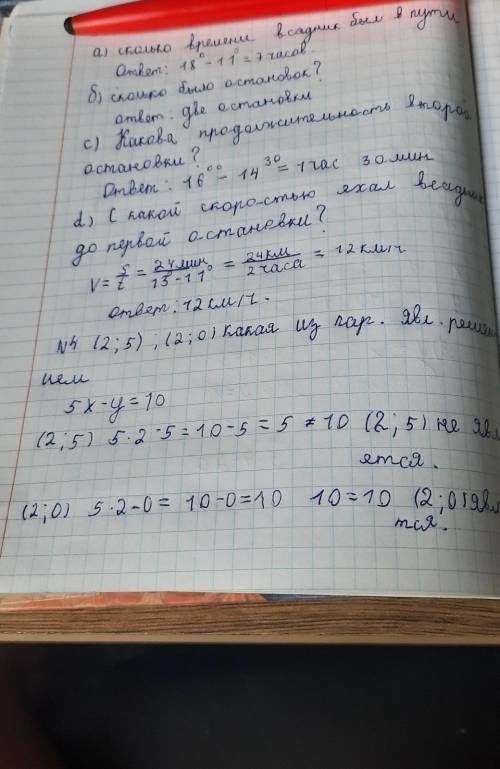 а) сколько времени всадник был в пути
Ответ: 18⁰ - 11⁰ = 7 часов.
б) сколько было остановок?
ответ. две остановки
с) Какова продолжительность второй
остановки?
Ответ: 16⁰⁰ - 14³⁰ = 1 час 30 мин
d) С какой скоростью ехал всадник
до первой остановки?
V = S/t = 24мин/13-11⁰ = 24км/2часа = 12км/ч
ответ: 12см/ч.
№4 (2;5) ; (2;0) какая из пар. явл. решен
ием
5x-y=10
(2;5) 5·2-5=10-5=5≠10 (2;5) не явл
ятся.
(2;0) 5·2-0= 10-0=10 10=10 (2;0) явл
тся.